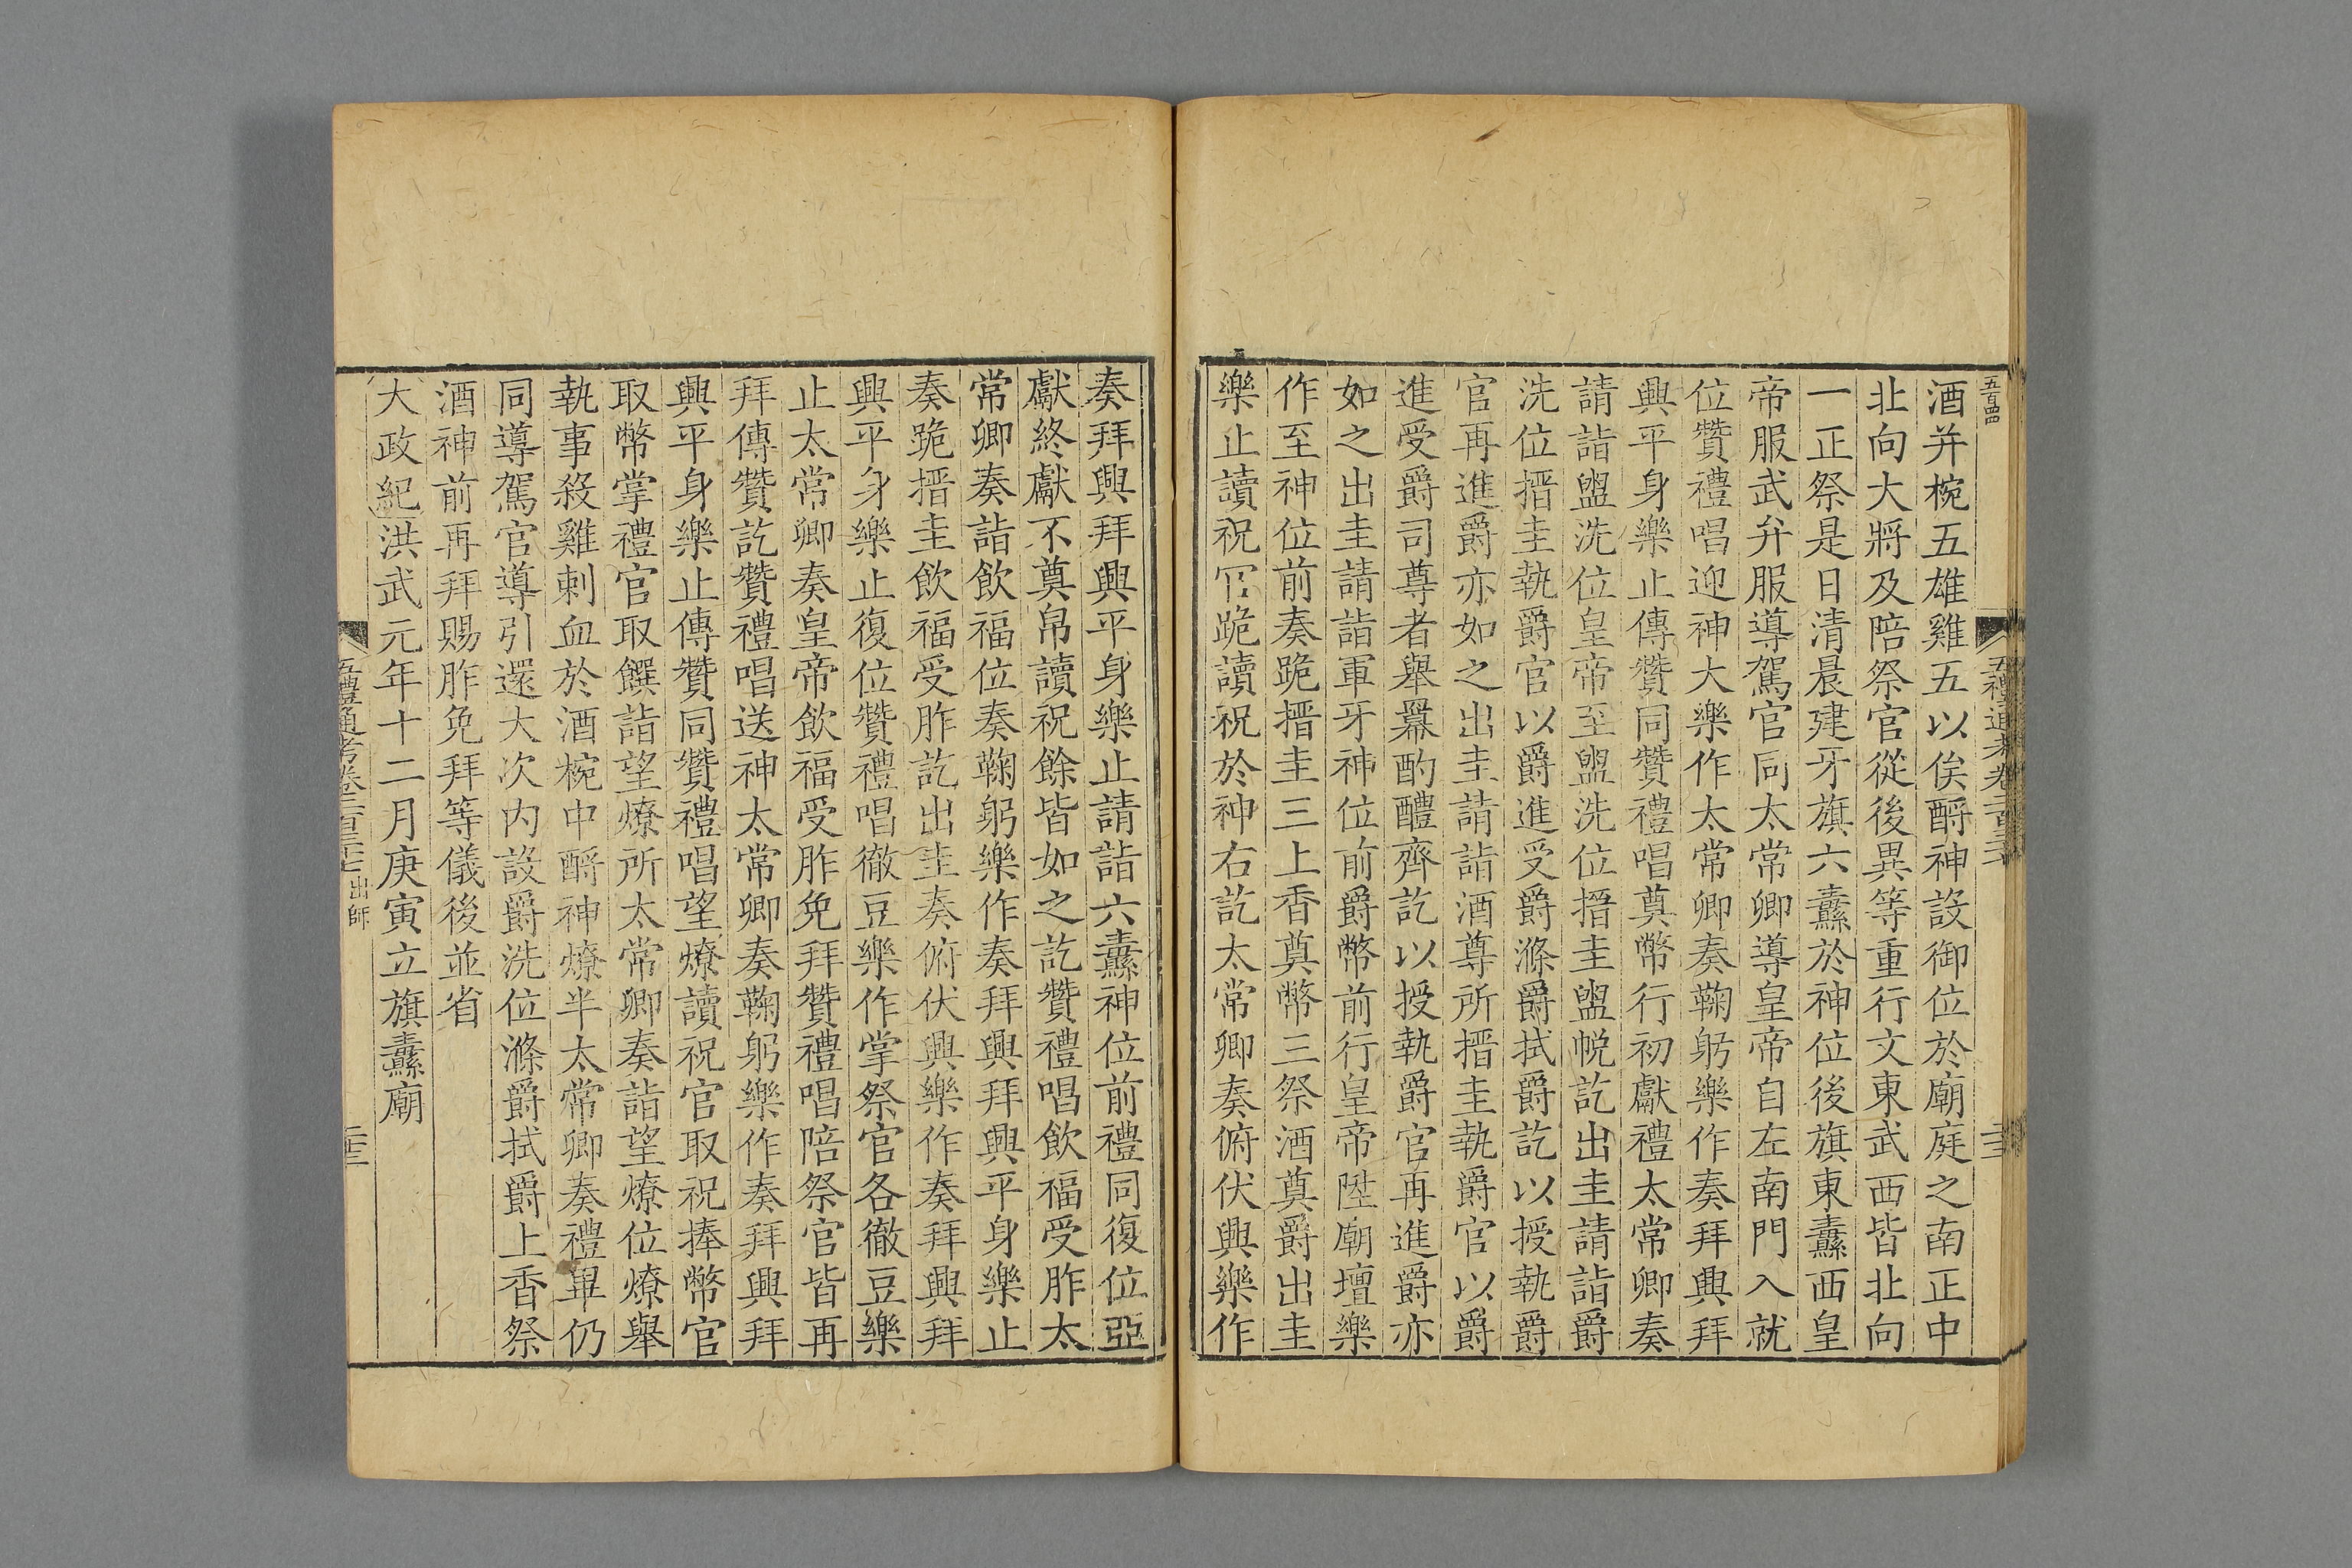 酒并椀五雄雞五以俟酹神設御位於廟庭之南正中
北向大將及陪祭官從後異等重行文東武西皆北向
一正祭是日清晨建牙旗六纛於神位後旗東纛西皇
帝服武弁服導駕官同太常卿導皇帝自左南門入就
位贊禮唱迎神大樂作太常卿奏鞠躬樂作奏拜興拜
興平身樂止傳贊同贊禮唱奠幣行初獻禮太常卿奏
請詣盥洗位皇帝至盥洗位搢圭盥帨訖出圭請詣爵
洗位搢圭執爵官以爵進受爵滌爵拭爵訖以授執爵
官再進爵亦如之出圭請詣酒尊所搢圭執爵官以爵
進受爵司尊者舉羃酌醴齊訖以授執爵官再進爵亦
如之出圭請詣軍牙神位前爵幣前行皇帝陞廟壇樂
作至神位前奏跪搢圭三上香奠幣三祭酒奠爵出圭
樂止讀祝官跪讀祝於神右訖太常卿奏俯伏興樂作
奏拜興拜興平身樂止請詣六纛神位前禮同復位亞
獻終獻不奠帛讀祝餘皆如之訖贊禮唱飲福受胙太
常卿奏詣飲福位奏鞠躬樂作奏拜興拜興平身樂止
奏跪搢圭飲福受胙訖出圭奏俯伏興樂作奏拜興拜
興平身樂止復位贊禮唱徹豆樂作掌祭官各徹豆樂
止太常卿奏皇帝飲福受胙免拜贊禮唱陪祭官皆再
拜傳贊訖贊禮唱送神太常卿奏鞠躬樂作奏拜興拜
興平身樂止傳贊同贊禮唱望燎讀祝官取祝捧幣官
取幣掌禮官取饌詣望燎所太常卿奏詣望燎位燎舉
執事殺雞刺血於酒椀中酹神燎半太常卿奏禮畢仍
同導駕官導引還大次內設爵洗位滌爵拭爵上香祭
酒神前再拜賜胙免拜等儀後並省
大政紀洪武元年十二月庚寅立旗纛廟
五禮通考卷二百三十七 出師